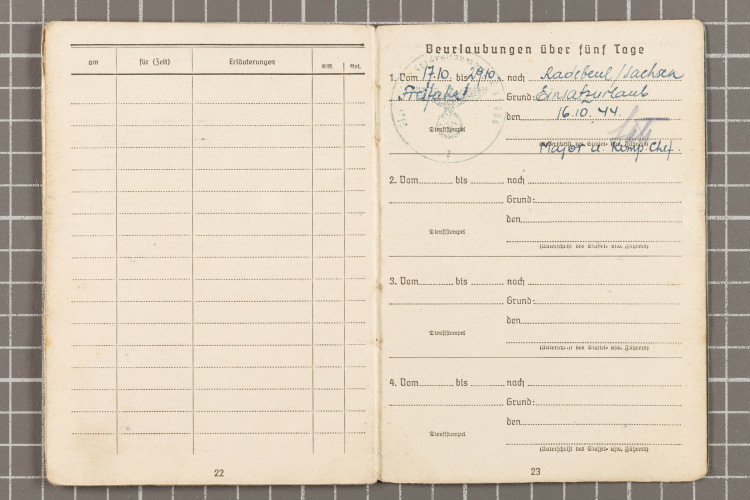 am für (Zeit) Erläuterungen RM. Rpf.
22
Beurlaubungen über fünf Tage
1. Vom 17.10. bis 29.10. nach Radebeul/Sachsen
Freifahrt Grund: Einsatzurlaub
den 16.10.44.
Dienststempel
Major u. Komp. Chef.
2. Vom bis nach
Grund:
den
Dienststempel
(Unterschrift des Staffel- usw. Führers)
3. Vom bis nach
Grund:
den
Dienststempel
(Unterschrift des Staffel- usw. Führers)
4. Vom bis nach
Grund:
den
Dienststempel
(Unterschrift des Staffel- usw. Führers)
23